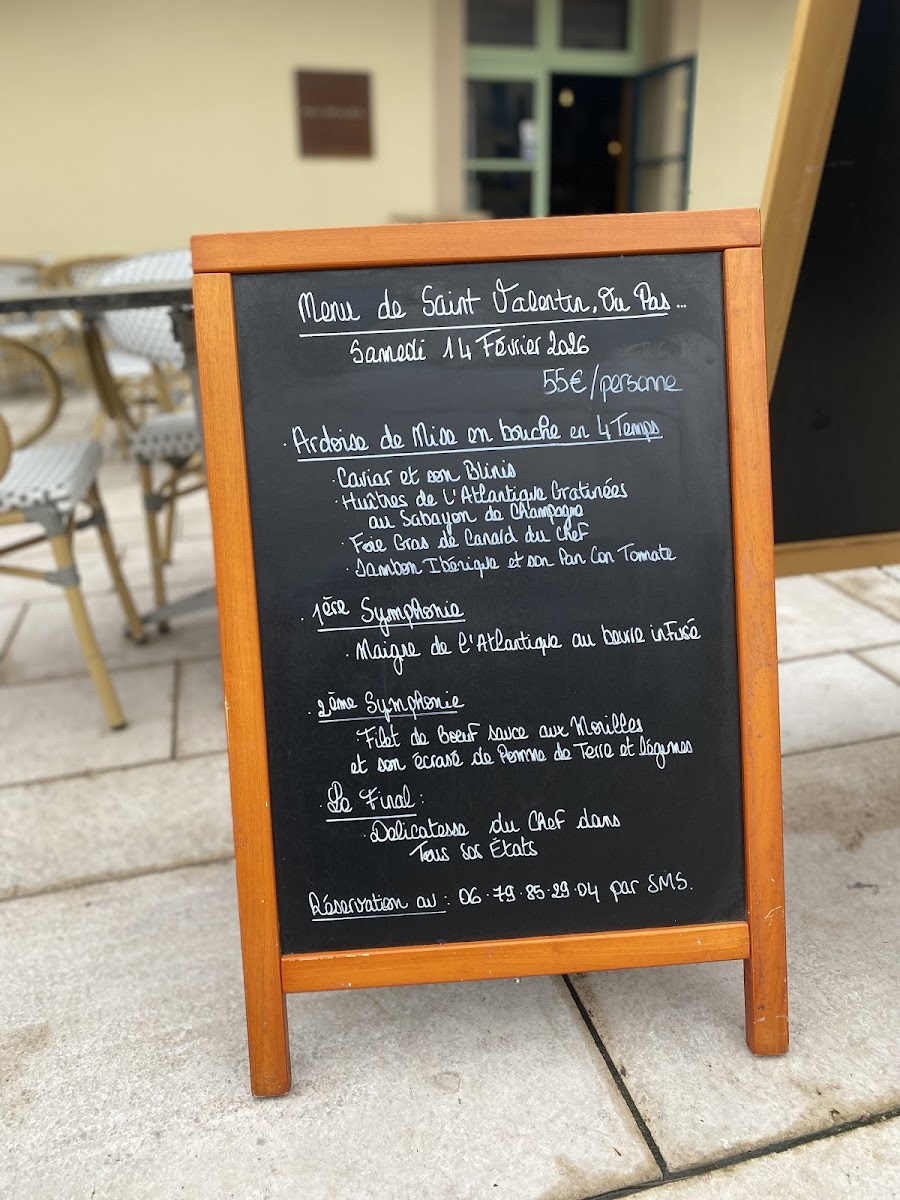 Menu de Saint Valentin, Ou Pas...
Samedi 14 Février 2026
55€/personne
· Ardoise de Mise en bouche en 4 Temps
· Caviar et son Blinis
· Huîtres de l'Atlantique Gratinées
au Sabayon de Champagne
· Foie Gras de Canard du Chef
· Jambon Ibérique et son Pan Con Tomate
· 1ère Symphonie
· Maigre de l'Atlantique au beurre infusé
· 2ème Symphonie
· Filet de Boeuf sauce aux Morilles
et son écrasé de Pomme de Terre et légumes
· Le Final :
· Délicatesse du Chef dans
Tous Ses États
Réservation au : 06·79·85·29·04 par SMS.